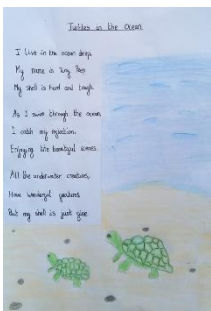 Turtles in the Ocean
I live in the ocean deep.
My name is
My shell is hard and tough.
As I swim through the ocean
I catch my reflection.
Enjoying the beautiful scenes.
All the underwater creatures,
Have wonderful
But my shell is just